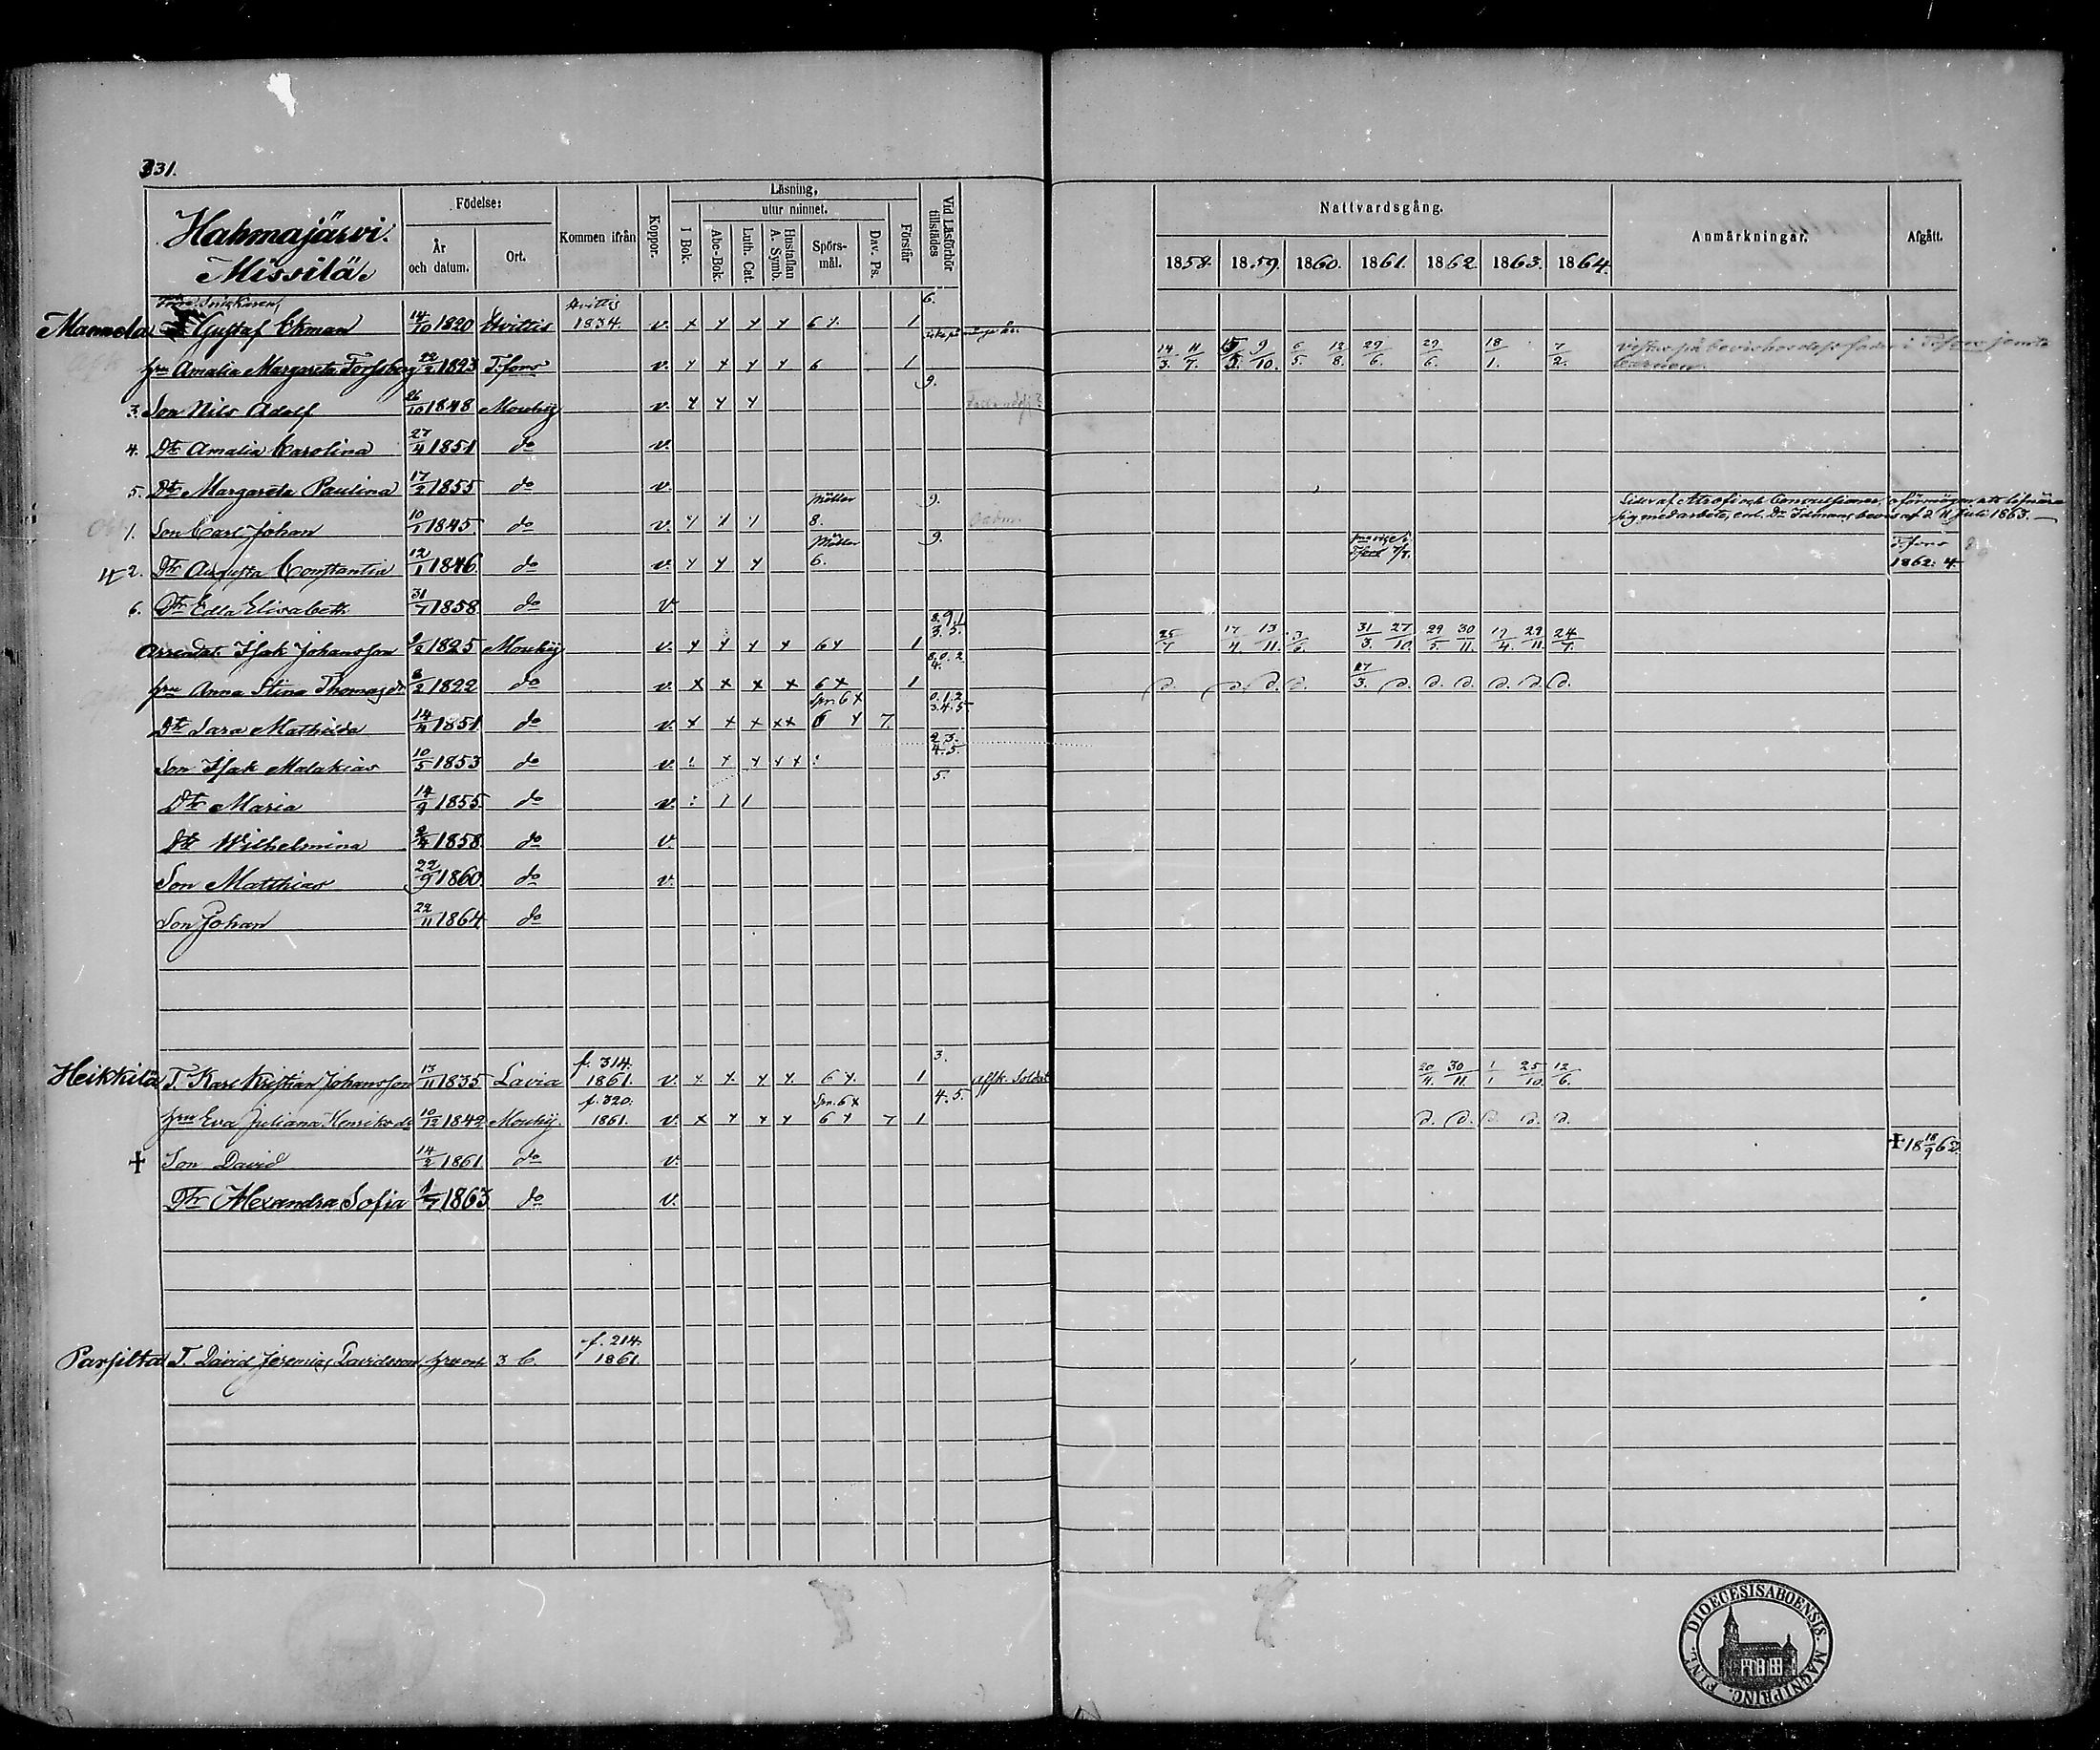 331.
Hahmajärvi.
Missilä.
Födelse:
År och datum.
Ort.
Kommen ifrån
Koppor.
Läsning,
I Bok.
utur minnet.
Abc-Bok.
Luth. Cat.
Hustaflan A. Symb.
Spörsmål.
Dav. Ps.
Förstår
Vid Läsförhör tillstädes
Nattvardsgång.
1858. 1859. 1860. 1861. 1862. 1863. 1864.
Anmärkningar.
Afgått.
Mannola Gustaf Ekman 14/10 1820 Hvittis Hvittis 1834. v. x x x x 6 x. 1 6.
hru Amalia Margareta Forssberg 22/2 1823 T:fors v. x x x x 6 1 14/3. 11/7. 9/10. 6/5. 12/8. 29/6. 29/6. 18/1. 7/2.
3. Son Nils Adolf 26/10 1848 Mouhij v. x x x 9.
4. Dr Amalia Carolina 27/4 1851 do v.
5. Dr Margareta Paulina 17/2 1855 do v.
1. Son Carl Johan 10/1 1845. do v. x x x 8. 9. Lider af Atrofi och Convulsioner, oförmögen att lifnära sig med arbete, enl. Dr Idmans bevis af d. 11 Juli 1863.
2. Dr Augusta Constantia 12/1 1846 do v. x x x 6. 9. T:fors 1862: 4.
6. Dr Edla Elisabeth 31/7 1858. do v
Arrendat. Isak Johansson 9/2 1825 Mouhij v. x x x x 6 x 1 8. 9. 1 3. 5. 25/7 17/4. 13/11. 3/6. 31/3. 27/10. 29/5. 30/11. 19/4. 29/11. 24/7.
hru Anna Stina Thomasdr 8/2 1822 do v. x x x x 6 x 1 8. 0. 2. 4. d. d. d. d. 27/3. d. d. d. d. d. d.
Dr Sara Mathilda 14/4 1851. do v. x x x x x 6 x 7. 0. 1. 2. 3. 4. 5.
Son Isak Malakias 10/5 1853 do v. : x x x x : 2. 3. 4. 5.
Dr Maria 14/9 1855. do v. : 1 1 5.
Dr Wilhelmina 2/4 1858. do v.
Son Matthias 22/9 1860. do v.
Son Johan 22/11 1864 do
Heikkilä T. Karl Kristian Johansson 13/11 1835 Lavia f. 314. 1861. v. x x x x 6 x. 1 3. afsk. Soldat 20/4. 30/11. 1/1 25/10. 12/6.
hru Eva Juliana Henriksdr 10/12 1842 Mouhij. f. 320. 1861. v. x x x x Spr. 6 x 6 x 7 1 4. 5. d. d. d. d. d.
+ Son David 14/2 1861 do v. + 18 18/9 62.
Dr Alexandra Sofia 1/7 1863. do v.
Parsilta T. David Jeremias Davidsson hru och 3 b. f. 214. 1861.
FINL. DIOECESIS ABOENSIS. MAGNI PRINC.